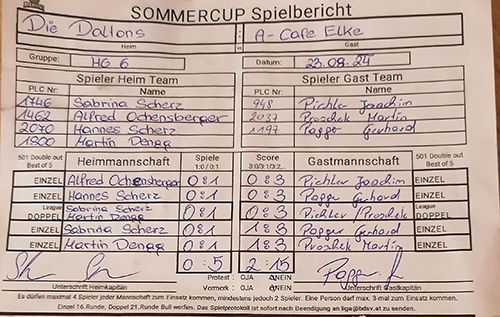 SOMMERCUP Spielbericht
Die Daltons : A-Cafe Elke
Heim Gast
Gruppe: HG 6 Datum: 23.08.24
Spieler Heim Team Spieler Gast Team
PLC Nr: Name PLC Nr: Name
1746 Sabrina Scherz 948 Pichler Joachim
1462 Alfred Ochensberger 2037 Proschek Martin
2070 Hannes Scherz 1197 Pagger Gerhard
1900 Martin Denga
501 Double out Best of 5 Heimmannschaft Spiele 1:0 / 0:1 Score 3:0/3:1/3:2... Gastmannschaft 501 Double out Best of 5
EINZEL Alfred Ochensberger 0:1 0:3 Pichler Joachim EINZEL
EINZEL Hannes Scherz 0:1 0:3 Pagger Gerhard EINZEL
League DOPPEL Sabrina Scherz Martin Denga 0:1 0:3 Pichler/Proschek League DOPPEL
EINZEL Sabrina Scherz 0:1 1:3 Pagger Gerhard EINZEL
EINZEL Martin Denga 0:1 1:3 Proschek Martin EINZEL
0:5 2:15
Protest : OJA NEIN
Unterschrift Heimkapitän Vermerk : OJA NEIN Unterschrift Gastkapitän
Es dürfen maximal 4 Spieler jeder Mannschaft zum Einsatz kommen, mindestens jedoch 2 Spieler. Eine Person darf max. 3-mal zum Einsatz kommen.
Einzel 16.Runde, Doppel 21.Runde Bull werfen. Das Spielprotokoll ist sofort nach Beendigung an liga@bdsv.at zu senden.